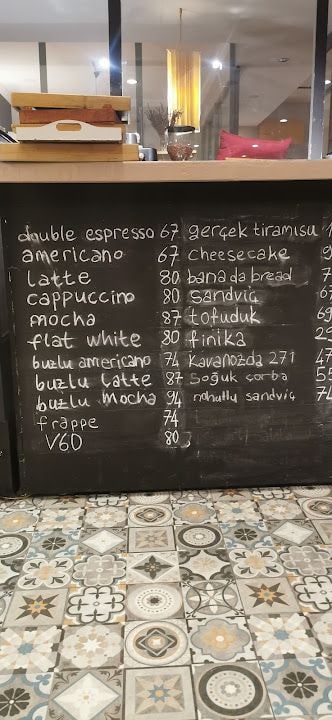 double espresso 67
americano 67
latte 80
cappuccino 80
mocha 87
flat white 80
buzlu americano 74
buzlu latte 87
buzlu mocha 94
frappe 74
V60 80
gerçek tiramisu
cheesecake
banana bread
sandviç
tofuduk
finika
Kavanozda 271
Soğuk çorba
nohutlu sandviç